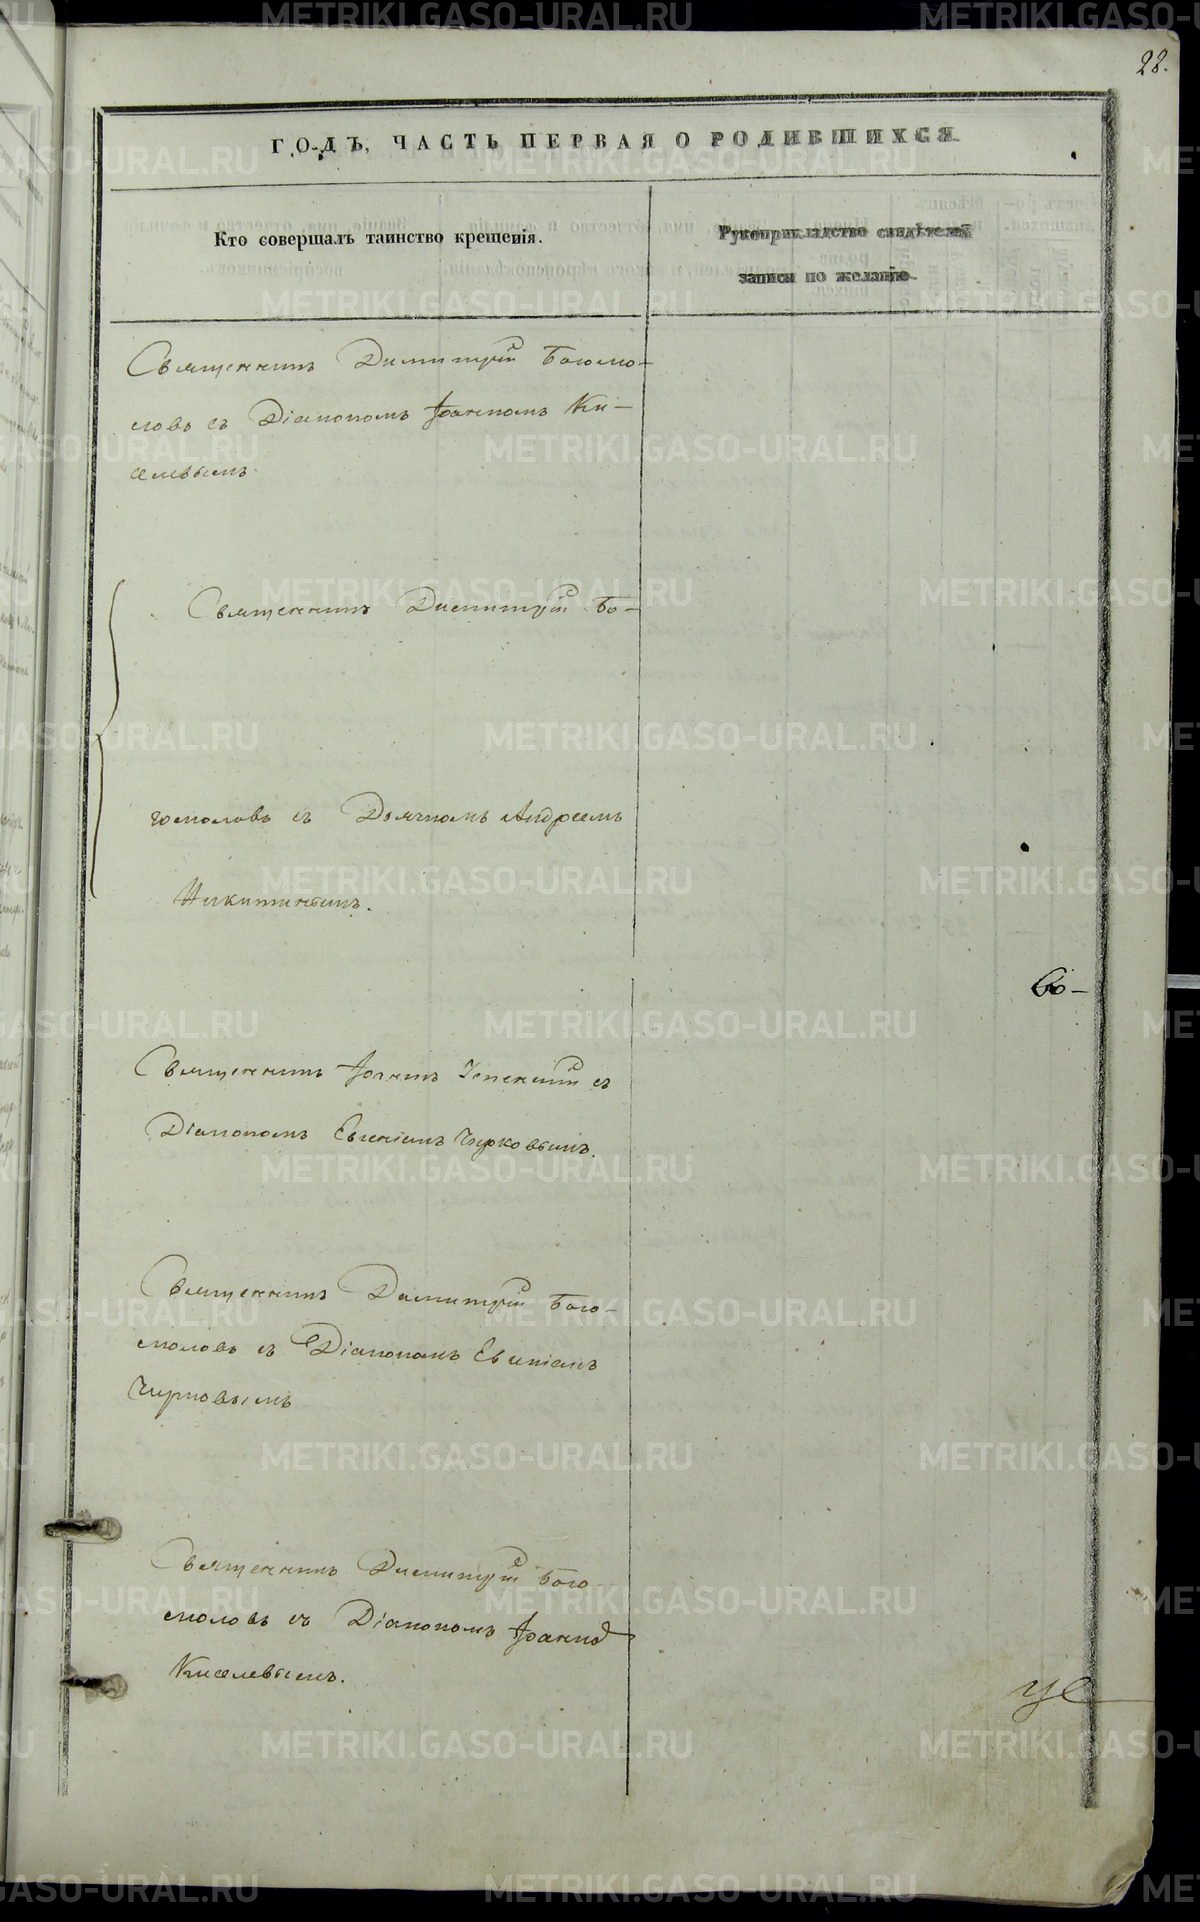 28.
ГОДЪ, ЧАСТЬ ПЕРВАЯ О РОДИВШИХСЯ.
Кто совершалъ таинство крещенія.
Рукоприкладство свидѣтелей
записи по желанію.
Священникъ Димитрій Богомо-
ловъ съ Діакономъ Іоанномъ Ки-
селевымъ.
Священникъ Димитрій Бо-
гомоловъ съ Дьячкомъ Андреемъ
Никитинымъ.
Священникъ Іоаннъ съ
Діакономъ Евгеніемъ Чирковымъ.
Священникъ Димитрій Бого-
моловъ съ Діакономъ Евгеніемъ
Чирковымъ
Священникъ Димитрій Бого
моловъ съ Діакономъ Іоанно
Киселевымъ.
METRIKI.GASO-URAL.RU